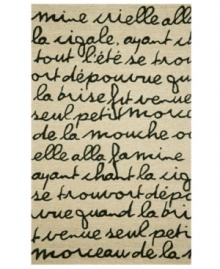 mine crielle alla
la cigale, ayant c
tout l'été se trou
ort dépourvue qua
la brise fut venue
seul petit morcea
de la mouche ou
elle alla famine
ayant chant la cig
se trouvort dépo
vue quand la bri
ut venue seul peti
morceau de la m